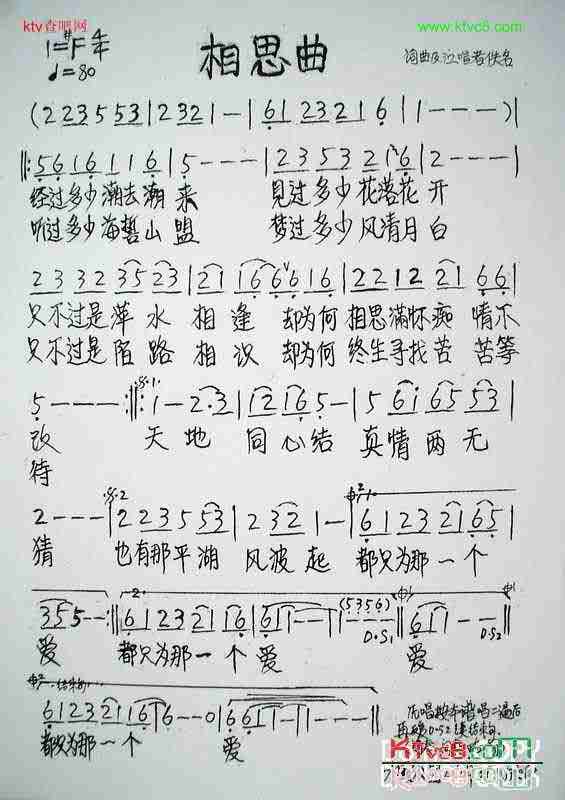 ktv查吧网
www.ktvc8.com
1=#F 4/4
♩=80
相思曲
词曲及泣唱者佚名
(2 2 3 5 5 3 | 2 3 2 1 — | 6 1 2 3 2 1 6 | 1 1 — — —)|
‖: 5 6 1 6 1 1 6 | 5 — — — | 2 3 5 3 2 1 6 | 2 — — — |
经过多少潮去潮来 见过多少花落花开
听过多少海誓山盟 梦过多少风清月白
2 3 3 2 3 5 2 3 | 2 1 1 6 6 6 1 6 | 2 2 1 2 2 1 6 6 |
只不过是萍水相逢 却为何相思满怀痴情不
只不过是陌路相识 却为何终生寻找苦苦等
5 — — — :‖: i — 2 · 3 | i 2 i 6 5 — | 5 6 i 6 5 5 3 |
改 天地同心结 真情两无
待
2 — — — | 2 2 3 5 5 3 | 2 3 2 1 — | 6 1 2 3 2 1 6 5 |
猜 也有那平湖风波起 都只为那一个
3 5 5 — — :‖ 6 1 2 3 2 1 1 6 | 6 1 1 — — | 1 — — — ‖ 6 1 1 — — ‖
(5 3 5 6)
D.S1
D.S2
爱 都只为那一个爱 爱
6 1 2 3 2 1 1 6 | 6 — — 0 | 6 6 1 1 — | 1 — — — | 1 — — — ‖
都只为那一个 爱
Ktvc8.com